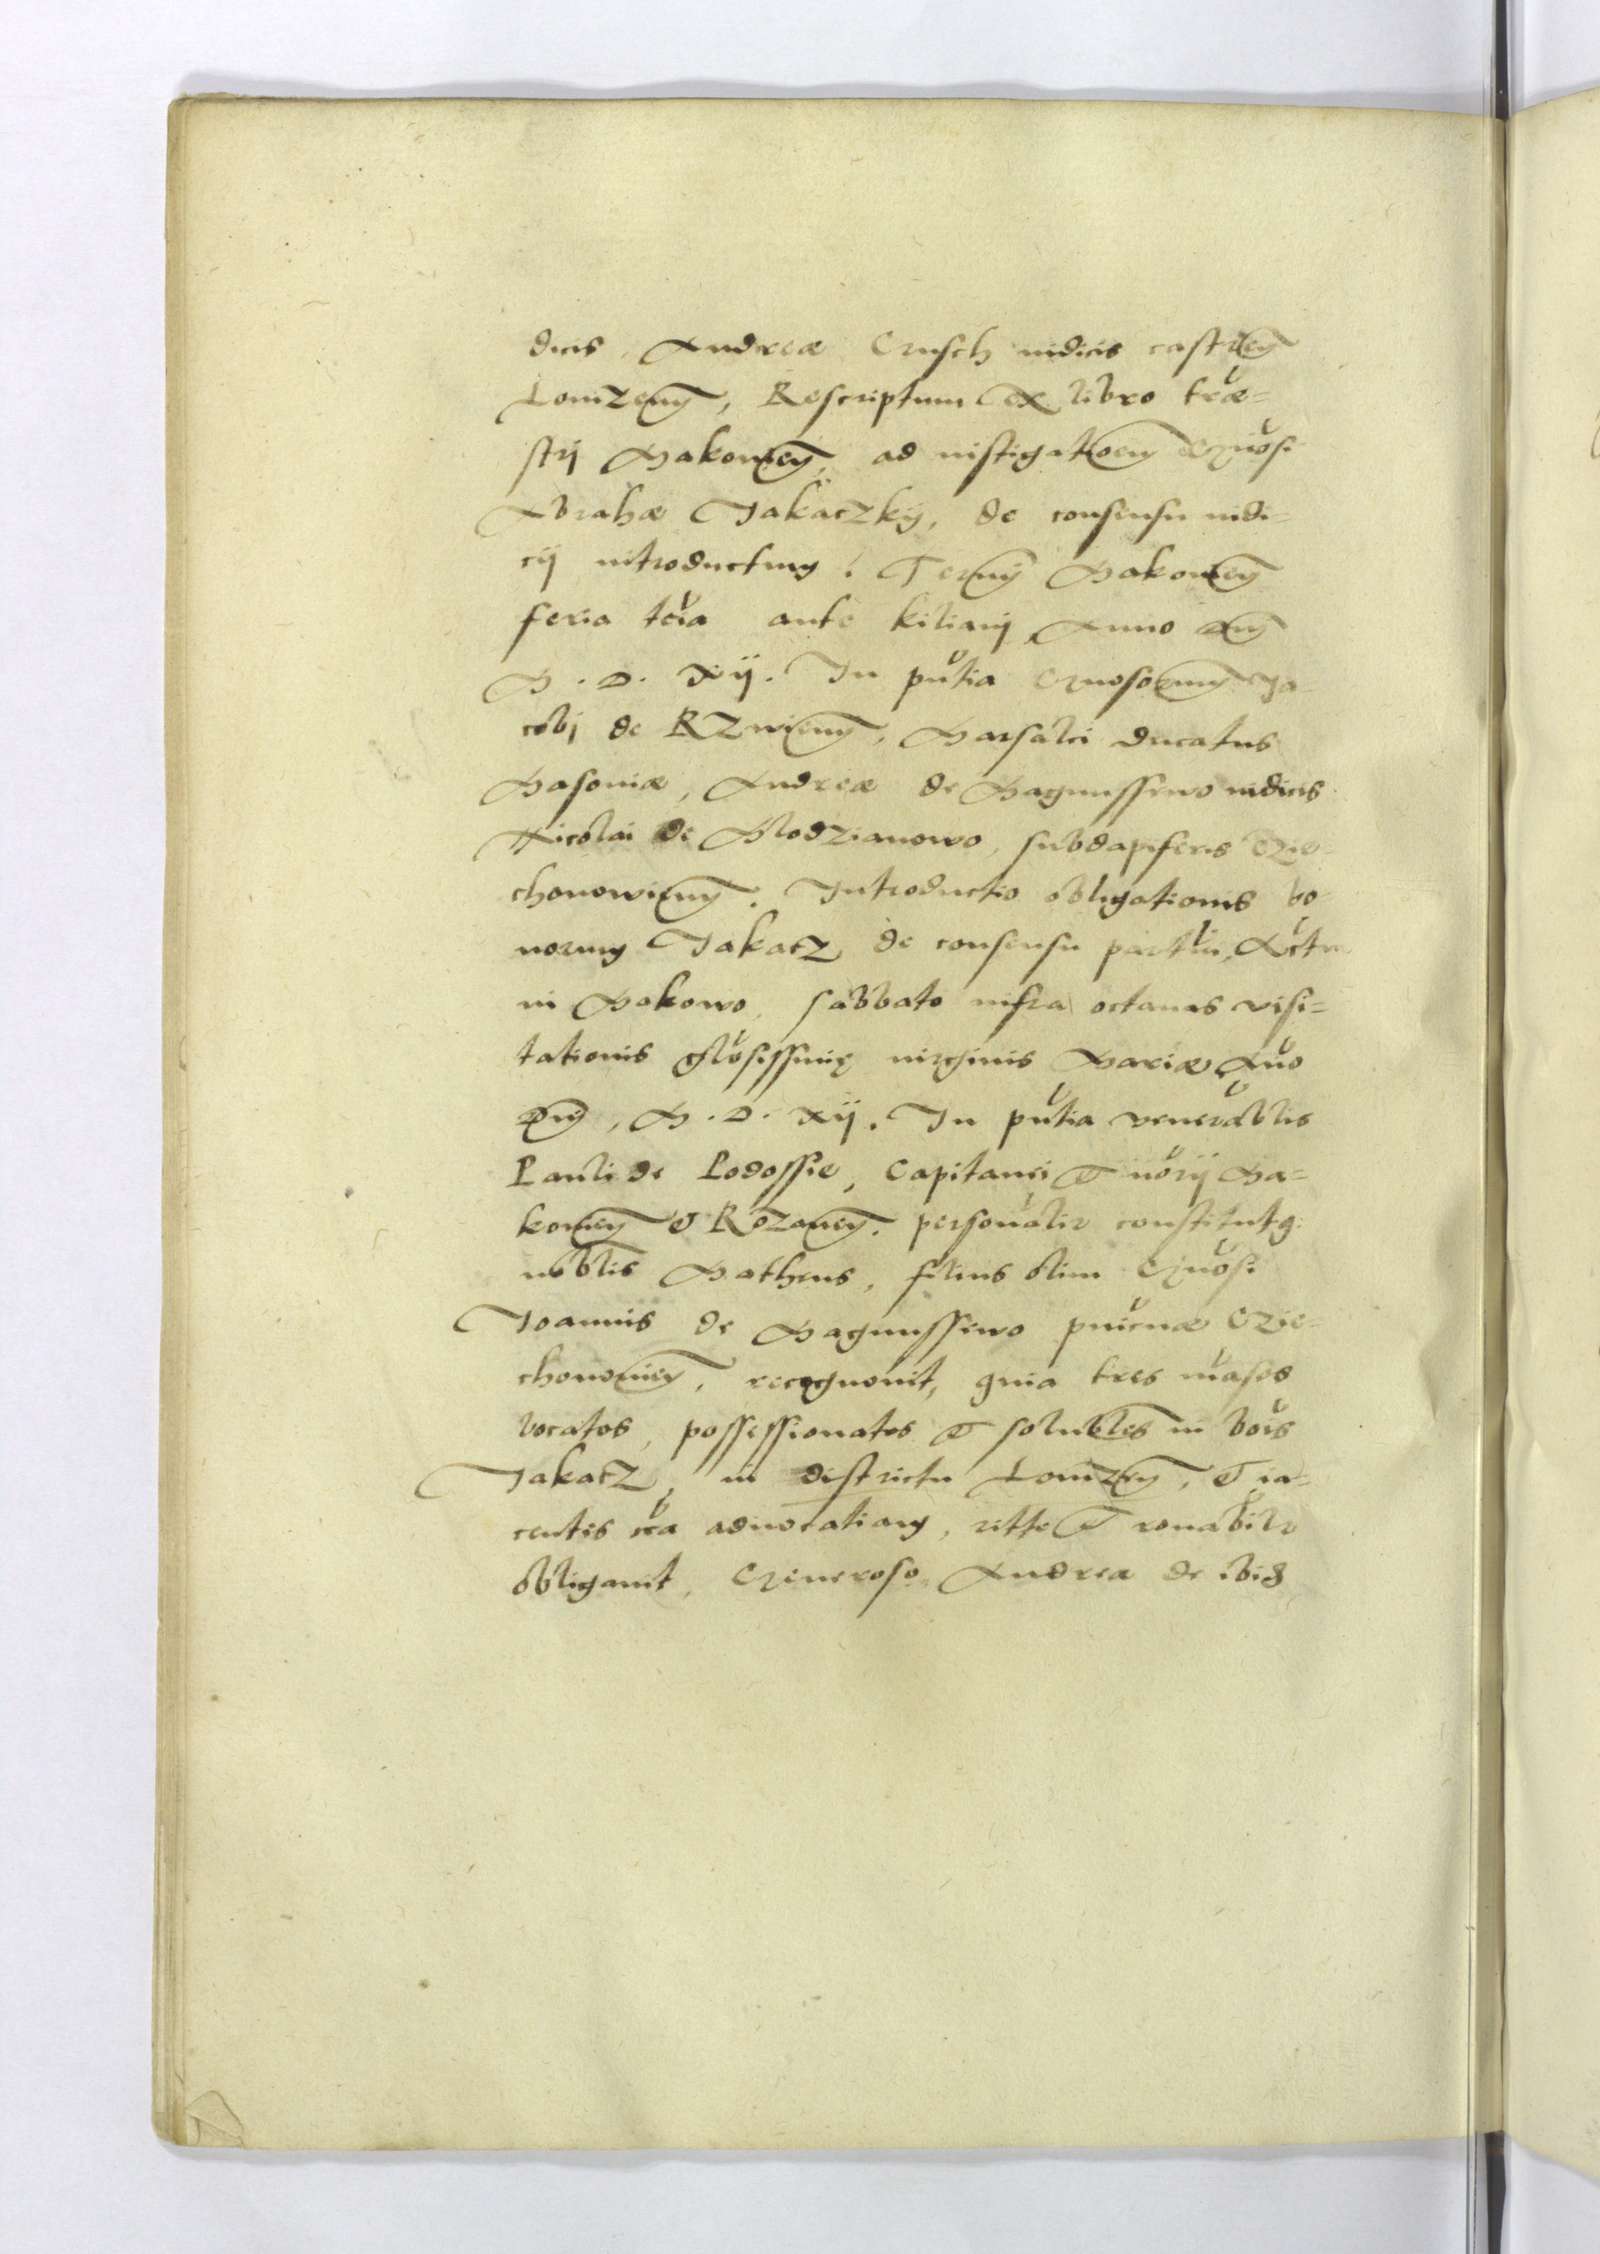 dicis, Andreæ Crusch iudicis castren̄
Lomzen̄, Rescriptum ex libro træ=
strj Makowien̄, ad instigatioem Gnosi
Abrahæ Jakaczkÿ, de consensu iudi=
cij introductum. Termīj Makowien̄
feria tcia ante Kilianj, Anno Dnj
M. D. Xij. In pñtia Gnosorum Ja=
cobj de Rzwien̄, Marsalci ducatus
Masoviæ, Andreæ de Magnussewo iudicis
Nicolai de Mlodzianowo, subdapiferis Czie=
chonowien̄. Introductio obligationis bo=
norum Jakacz, de consensu partiu, Actu
in Makowo, sabbato infra octavas visi=
tationis glosissimę virginis Mariæ Ano
Dnj, M. D. xij. In pñtia venerablis
Pauli de Lodossie, Capitanei & norij Ma=
kowien̄ & Rozanen̄. personalir constitutꝰ
noblis Matheus, filius olim Gnosi
Joannis de Magnussewo pincnæ Czie=
chonowien̄, recognovit, quia tres mãsos
vocatos, possessionatos & solubles in bois
Jakacz, in districtu Lomzen̄, & ia=
centis cca advocatiam, ritte & ronabilr
obligavit, Generoso Andreæ de ibiꝫ